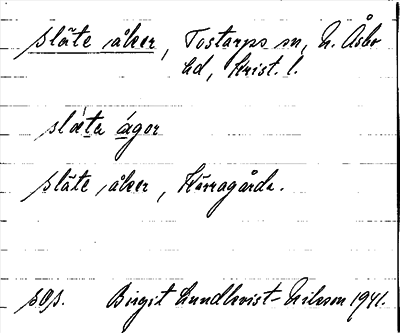 släte åker, Tostarps sn, N. Åsbo
hd, Krist. l.
släta ágor
släte åker, Kärragårda.
sgs. Birgit Lundkvist-Nilsson 1941.